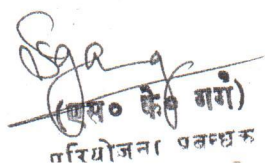 (एस० के० गर्ग)
परियोजना प्रबन्धक